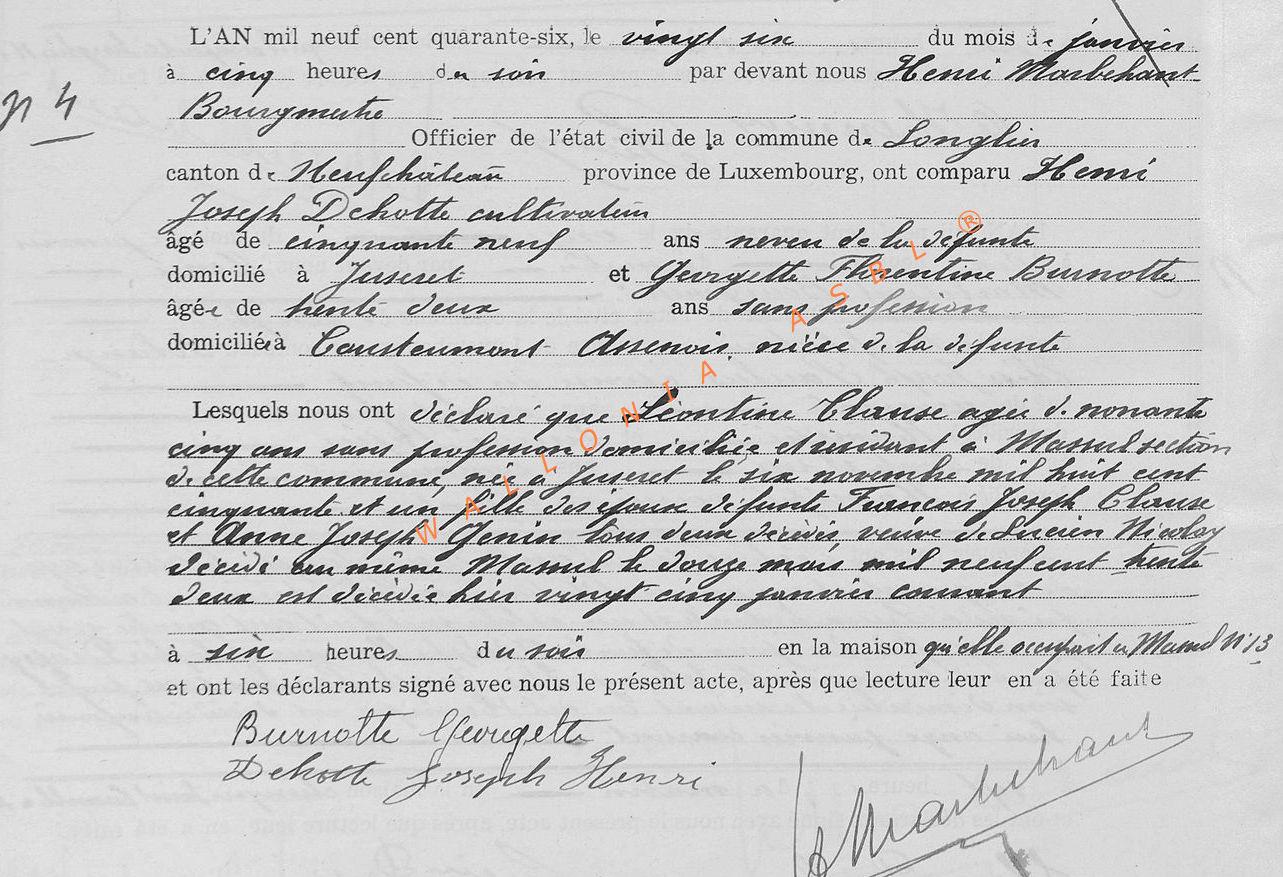 L'AN mil neuf cent quarante-six, le vingt six du mois de janvier
à cinq heures du soir par devant nous Henri Marbehant
N 4
Bourgmestre
Officier de l'état civil de la commune de Longlier
canton de Neufchâteau province de Luxembourg, ont comparu Henri
Joseph Dehotte cultivateur
âgé de cinquante neuf ans neveu de la défunte
domicilié à Jusseret et Georgette Florentine Burnotte
âgée de trente deux ans sans profession
domiciliée à Cousteumont Assenois, nièce de la défunte
Lesquels nous ont déclaré que Léontine Clause agée de nonante
cinq ans sans profession domiciliée et résidant à Massul section
de cette commune, née à Juseret le six novembre mil huit cent
cinquante et un fille des époux défunts François Joseph Clause
et Anne Joseph Genin tous deux décédés, veuve de Lucien Nicolay
décédé au même Massul le douze mars mil neuf cent trente
deux est décédée hier vingt cinq janvier courant
à six heures du soir en la maison qu'elle occupait à Massul N° 13
et ont les déclarants signé avec nous le présent acte, après que lecture leur en a été faite
Burnotte Georgette
Dehotte Joseph Henri
H Marbehant
WALLONIA ASBL ®